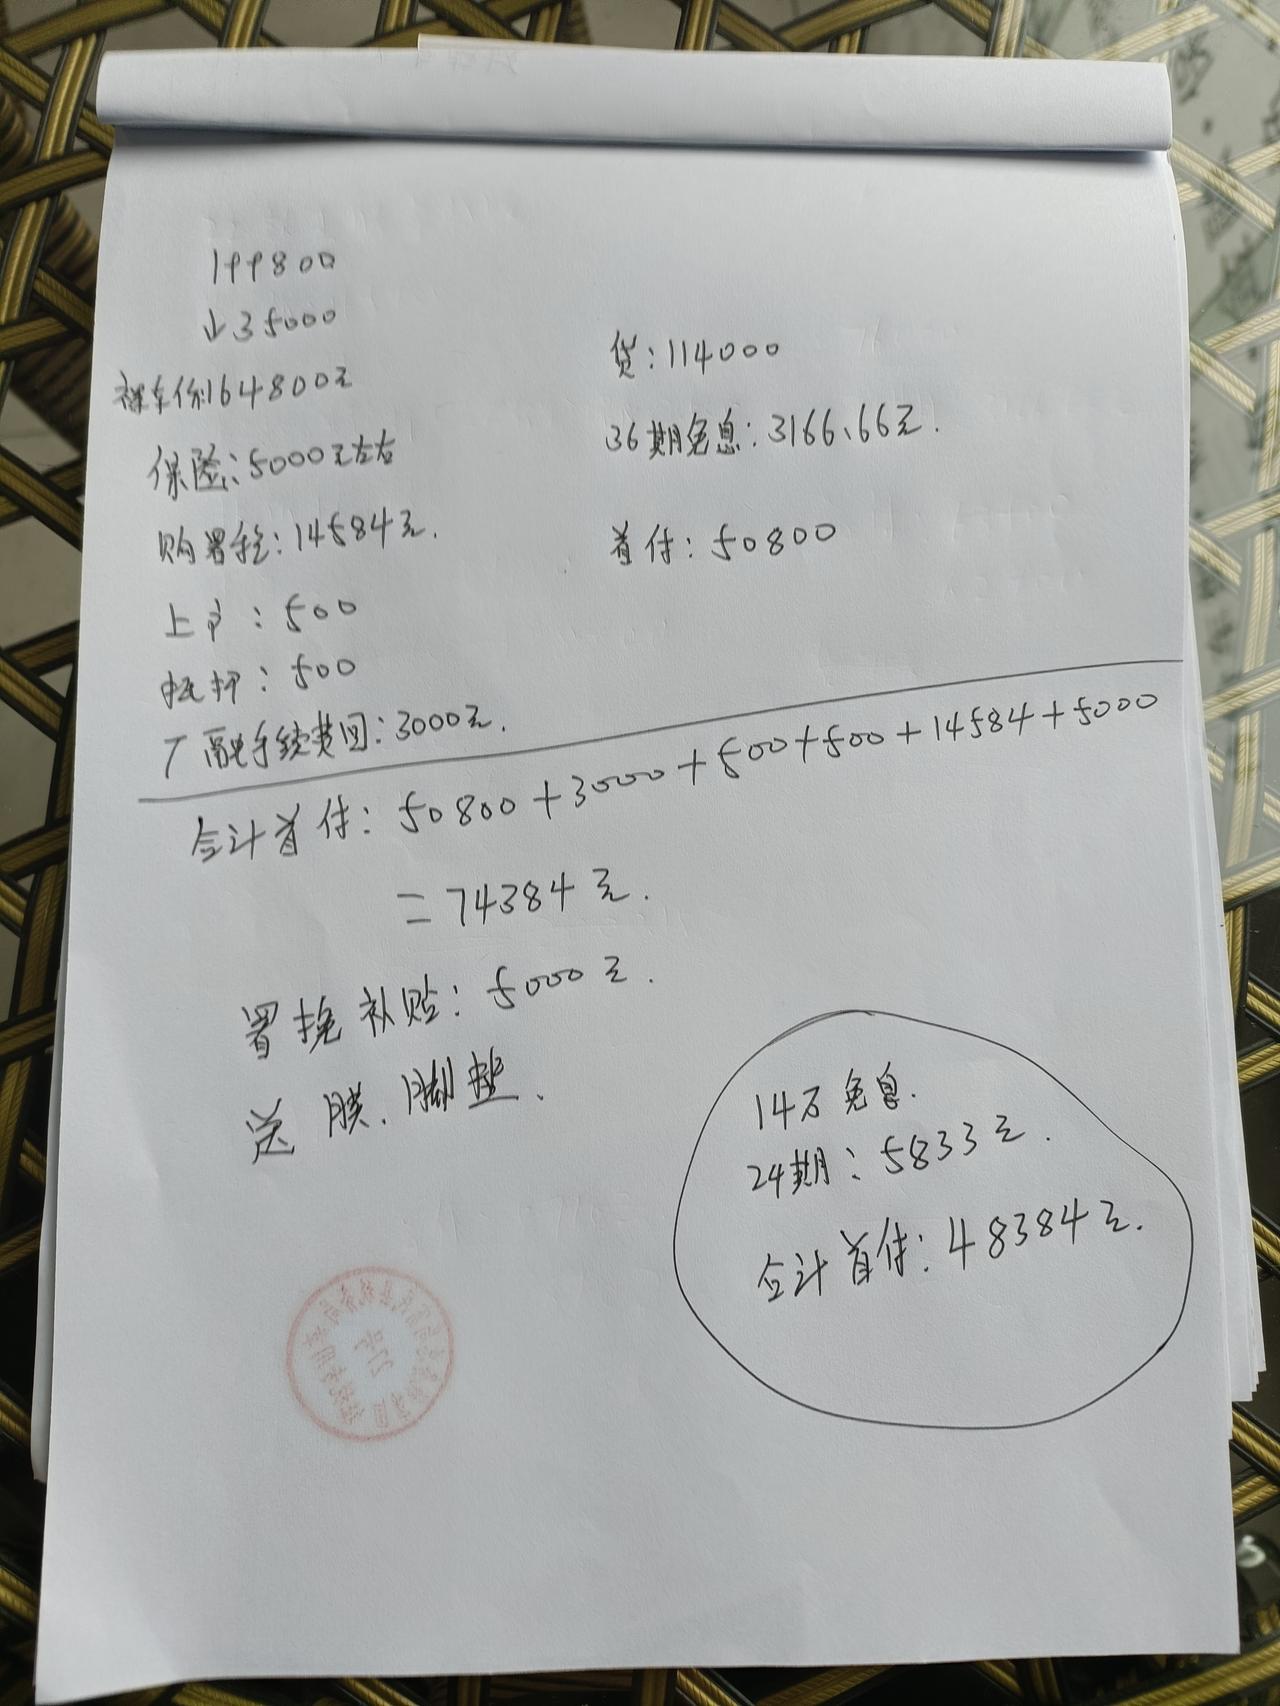 199800
↓35000
裸车价164800元
保险:5000元左右
购置税:14584元.
上户:500
抵押:500
厂融手续费:3000元.
贷:114000
36期免息:3166.66元.
首付:50800
合计首付:50800+3000+500+500+14584+5000
=74384元.
置换补贴:5000元.
送膜、脚垫.
14万免息.
24期:5833元.
合计首付:48384元.